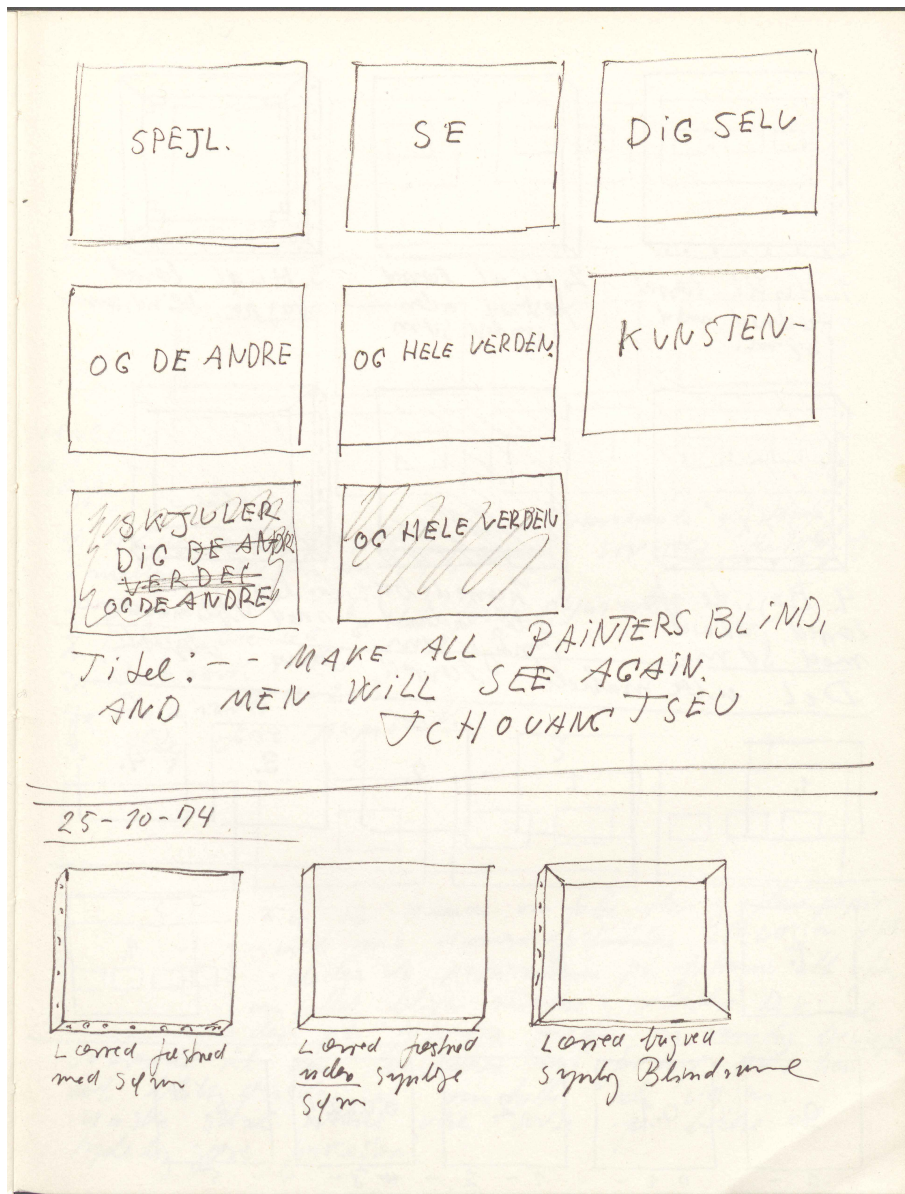 SPEJL.
SE
DIG SELV
OG DE ANDRE
OG HELE VERDEN.
KUNSTEN-
SKJULER
DIG DE ANDR
VERDEN
OG DE ANDRE
OG HELE VERDEN
Titel: -- MAKE ALL PAINTERS BLIND,
AND MEN WILL SEE AGAIN.
TCHOUANG TSEU
25-10-74
Lærred fastned
med søm
Lærred fastned
uden synlige
søm
Lærred bagved
synlig Blindramme